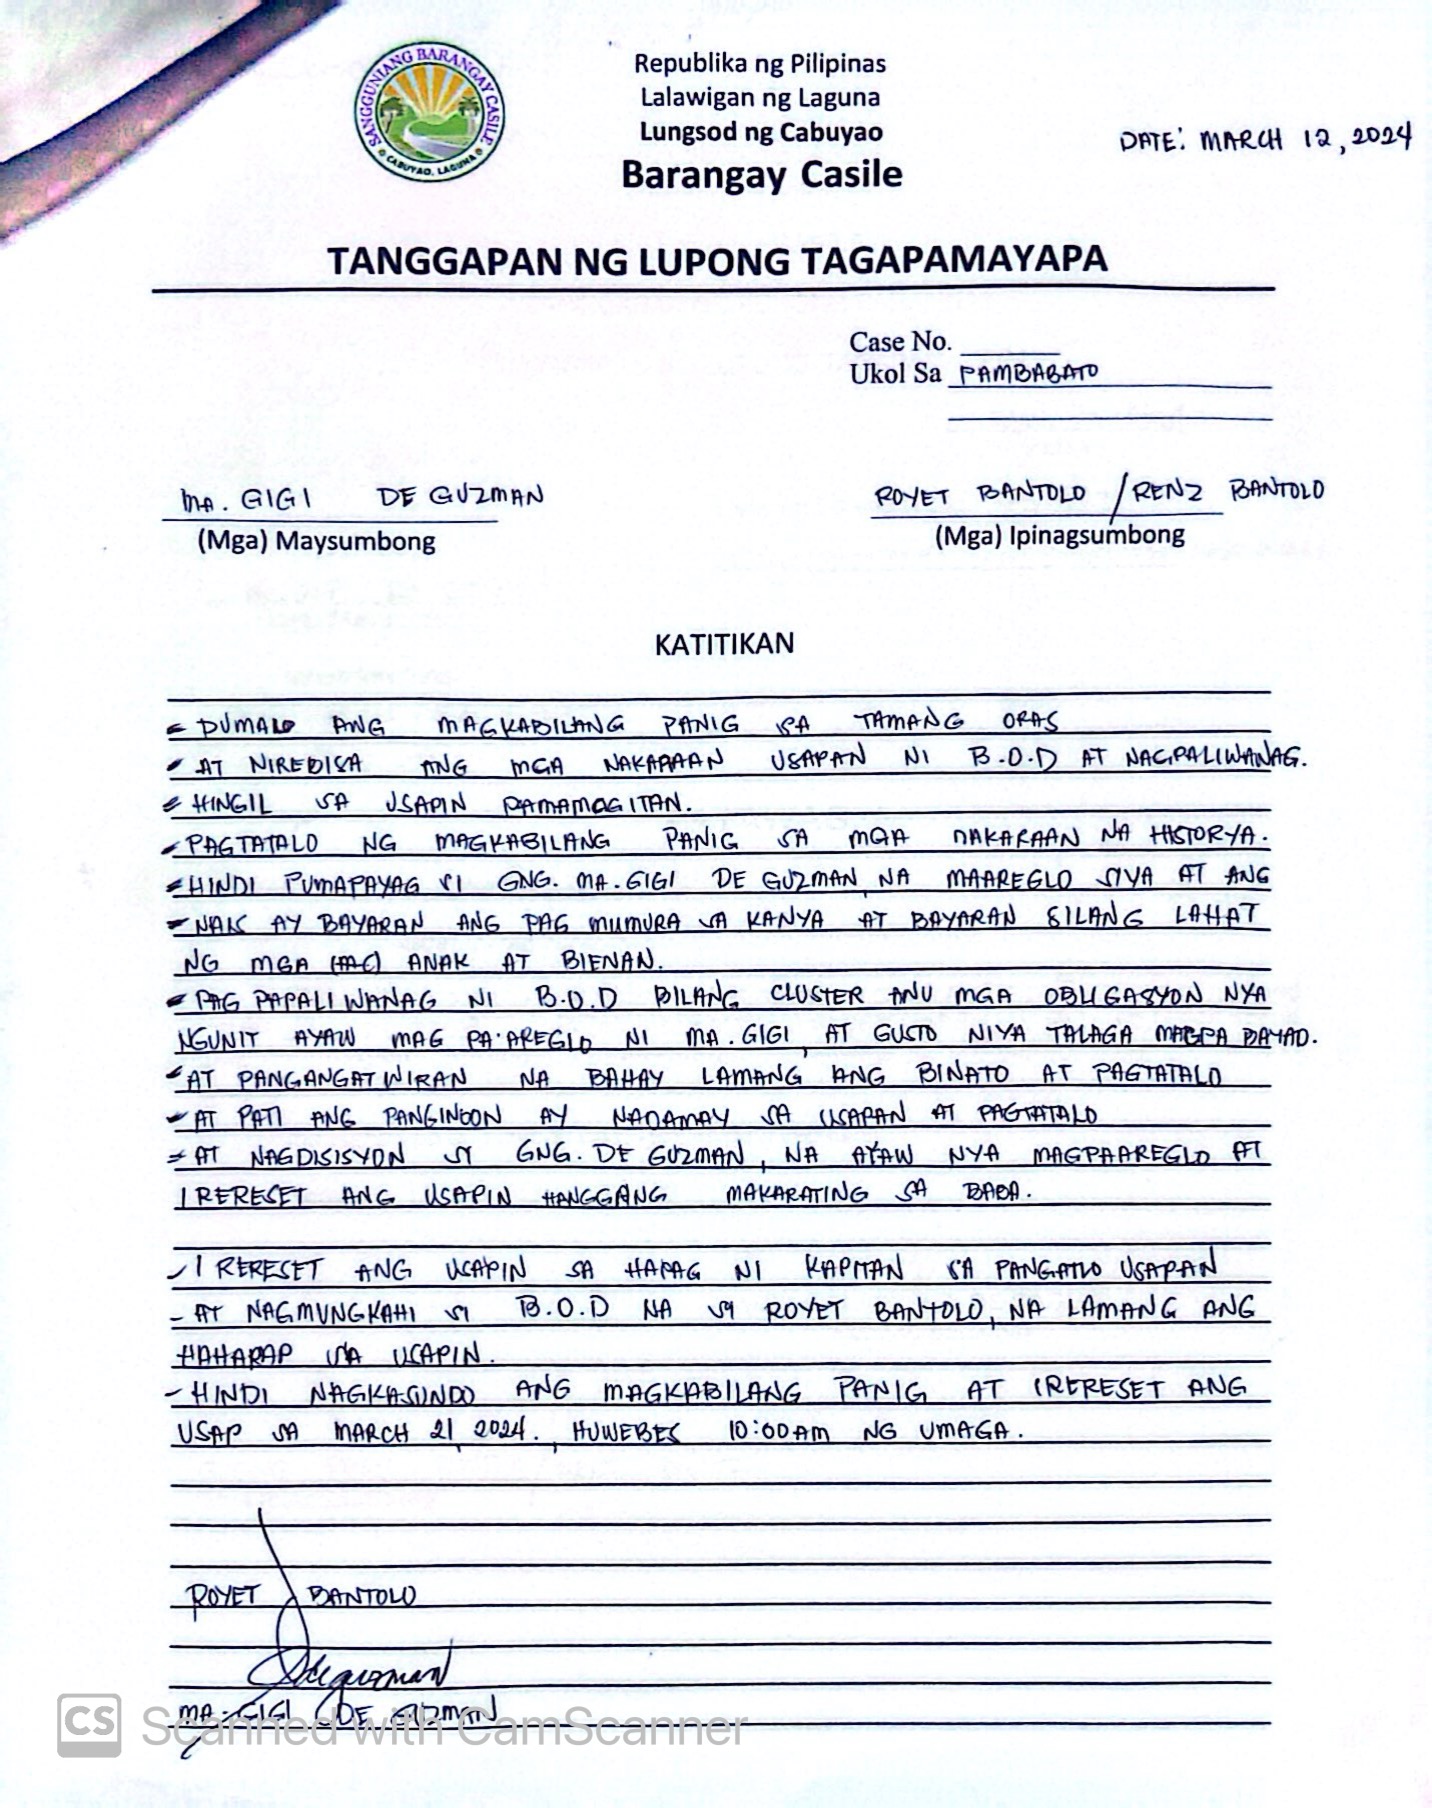 SANGGUNIANG BARANGAY CASILE
CABUYAO, LAGUNA
Republika ng Pilipinas
Lalawigan ng Laguna
Lungsod ng Cabuyao
Barangay Casile
DATE: MARCH 12, 2024
TANGGAPAN NG LUPONG TAGAPAMAYAPA
Case No.
Ukol Sa PAMBABATO
MA. GIGI DE GUZMAN
(Mga) Maysumbong
ROYET BANTOLO / RENZ BANTOLO
(Mga) Ipinagsumbong
KATITIKAN
- DUMALO ANG MAGKABILANG PANIG SA TAMANG ORAS
- AT NIREBISA ANG MGA NAKARAAN USAPAN NI B.O.D AT NAGPALIWANAG.
- HINGIL SA USAPIN PAMAMAGITAN.
- PAGTATALO NG MAGKABILANG PANIG SA MGA NAKARAAN NA HISTORYA.
- HINDI PUMAPAYAG SI GNG. MA. GIGI DE GUZMAN, NA MAAREGLO SIYA AT ANG
- NAIS AY BAYARAN ANG PAG MUMURA SA KANYA AT BAYARAN SILANG LAHAT
NG MGA ANAK AT BIENAN.
- PAG PAPALIWANAG NI B.O.D BILANG CLUSTER ANU MGA OBLIGASYON NYA
NGUNIT AYAW MAG PA'AREGLO NI MA. GIGI, AT GUSTO NIYA TALAGA MAGPA BAYAD.
- AT PANGANGATWIRAN NA BAHAY LAMANG ANG BINATO AT PAGTATALO
- AT PATI ANG PANGINOON AY NADAMAY SA USAPAN AT PAGTATALO
- AT NAGDISISYON SI GNG. DE GUZMAN, NA AYAW NYA MAGPAAREGLO AT
IRERESET ANG USAPIN HANGGANG MAKARATING SA BABA.
- IRERESET ANG USAPIN SA HARAG NI KAPITAN SA PANGATLO USAPAN
- AT NAGMUNGKAHI SI B.O.D NA SI ROYET BANTOLO, NA LAMANG ANG
HAHARAP SA USAPIN.
- HINDI NAGKASUNDO ANG MAGKABILANG PANIG AT IRERESET ANG
USAP SA MARCH 21, 2024., HUWEBES 10:00AM NG UMAGA.
ROYET BANTOLO
Deguzman
MA. GIGI DE GUZMAN
CS Scanned with CamScanner